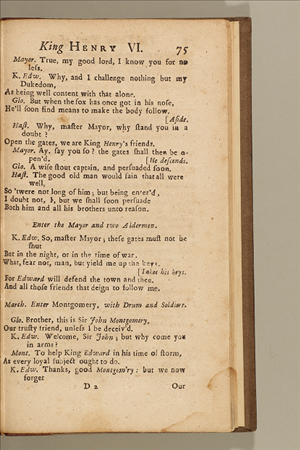 King HENRY VI. 75
Mayor. True, my good lord, I know you for no
less.
K. Edw. Why, and I challenge nothing but my
Dukedom,
As being well content with that alone.
Glo. But when the fox has once got in his nose,
He'll soon find means to make the body follow.
[Aside.
Hast. Why, master Mayor, why stand you in a
doubt?
Open the gates, we are King Henry's friends.
Mayor. Ay, say you so? the gates shall then be o-
pen'd. [He descends.
Glo. A wise stout captain, and persuaded soon.
Hast. The good old man would fain that all were
well,
So 'twere not long of him; but being enter'd,
I doubt not, I, but we shall soon persuade
Both him and all his brothers unto reason.
Enter the Mayor and two Aldermen.
K. Edw. So, master Mayor; these gates must not be
shut
But in the night, or in the time of war.
What, fear not, man, but yield me up the keys.
[Takes his keys.
For Edward will defend the town and thee,
And all those friends that deign to follow me.
March. Enter Montgomery, with Drum and Soldiers.
Glo. Brother, this is Sir John Montgomery,
Our trusty friend, unless I be deceiv'd.
K. Edw. Welcome, Sir John; but why come you
in arms?
Mont. To help King Edward in his time of storm,
As every loyal subject ought to do.
K. Edw. Thanks, good Montgom'ry: but we now
forget
D 2 Our